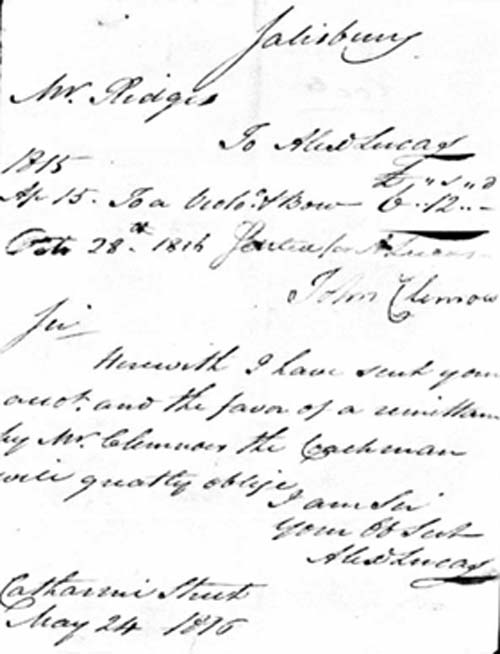 Salisbury
Mr. Ridges
To Alexd Lucas
1815
£ " s " d
Ap 15. To a Violo. & Bow 6 .. 12 .. -
28th 1816 Settled for A. Lucas
John Clemow
Sir
Herewith I have sent your
acot. and the favor of a remittan
by Mr. Clemnow the Coachman
will greatly oblige
I am Sir
Your Ob Sert
Alexd Lucas
Catharine Street
May 24 1816